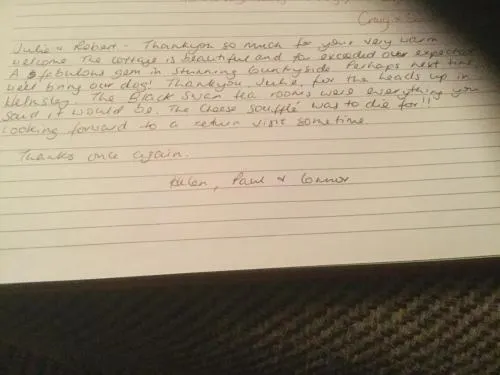 Craig &
Julie & Robert - Thankyou so much for your very warm
welcome. The cottage is beautiful and far exceeded our expectat
A fabulous gem in stunning countryside. Perhaps next time
we'll bring our dog! Thankyou Julie, for the heads up in
Helmsley. The Black Swan tea rooms were everything you
said it would be. The cheese soufflé was to die for!!
Looking forward to a return visit sometime.
Thanks once again.
Helen, Paul & Connor